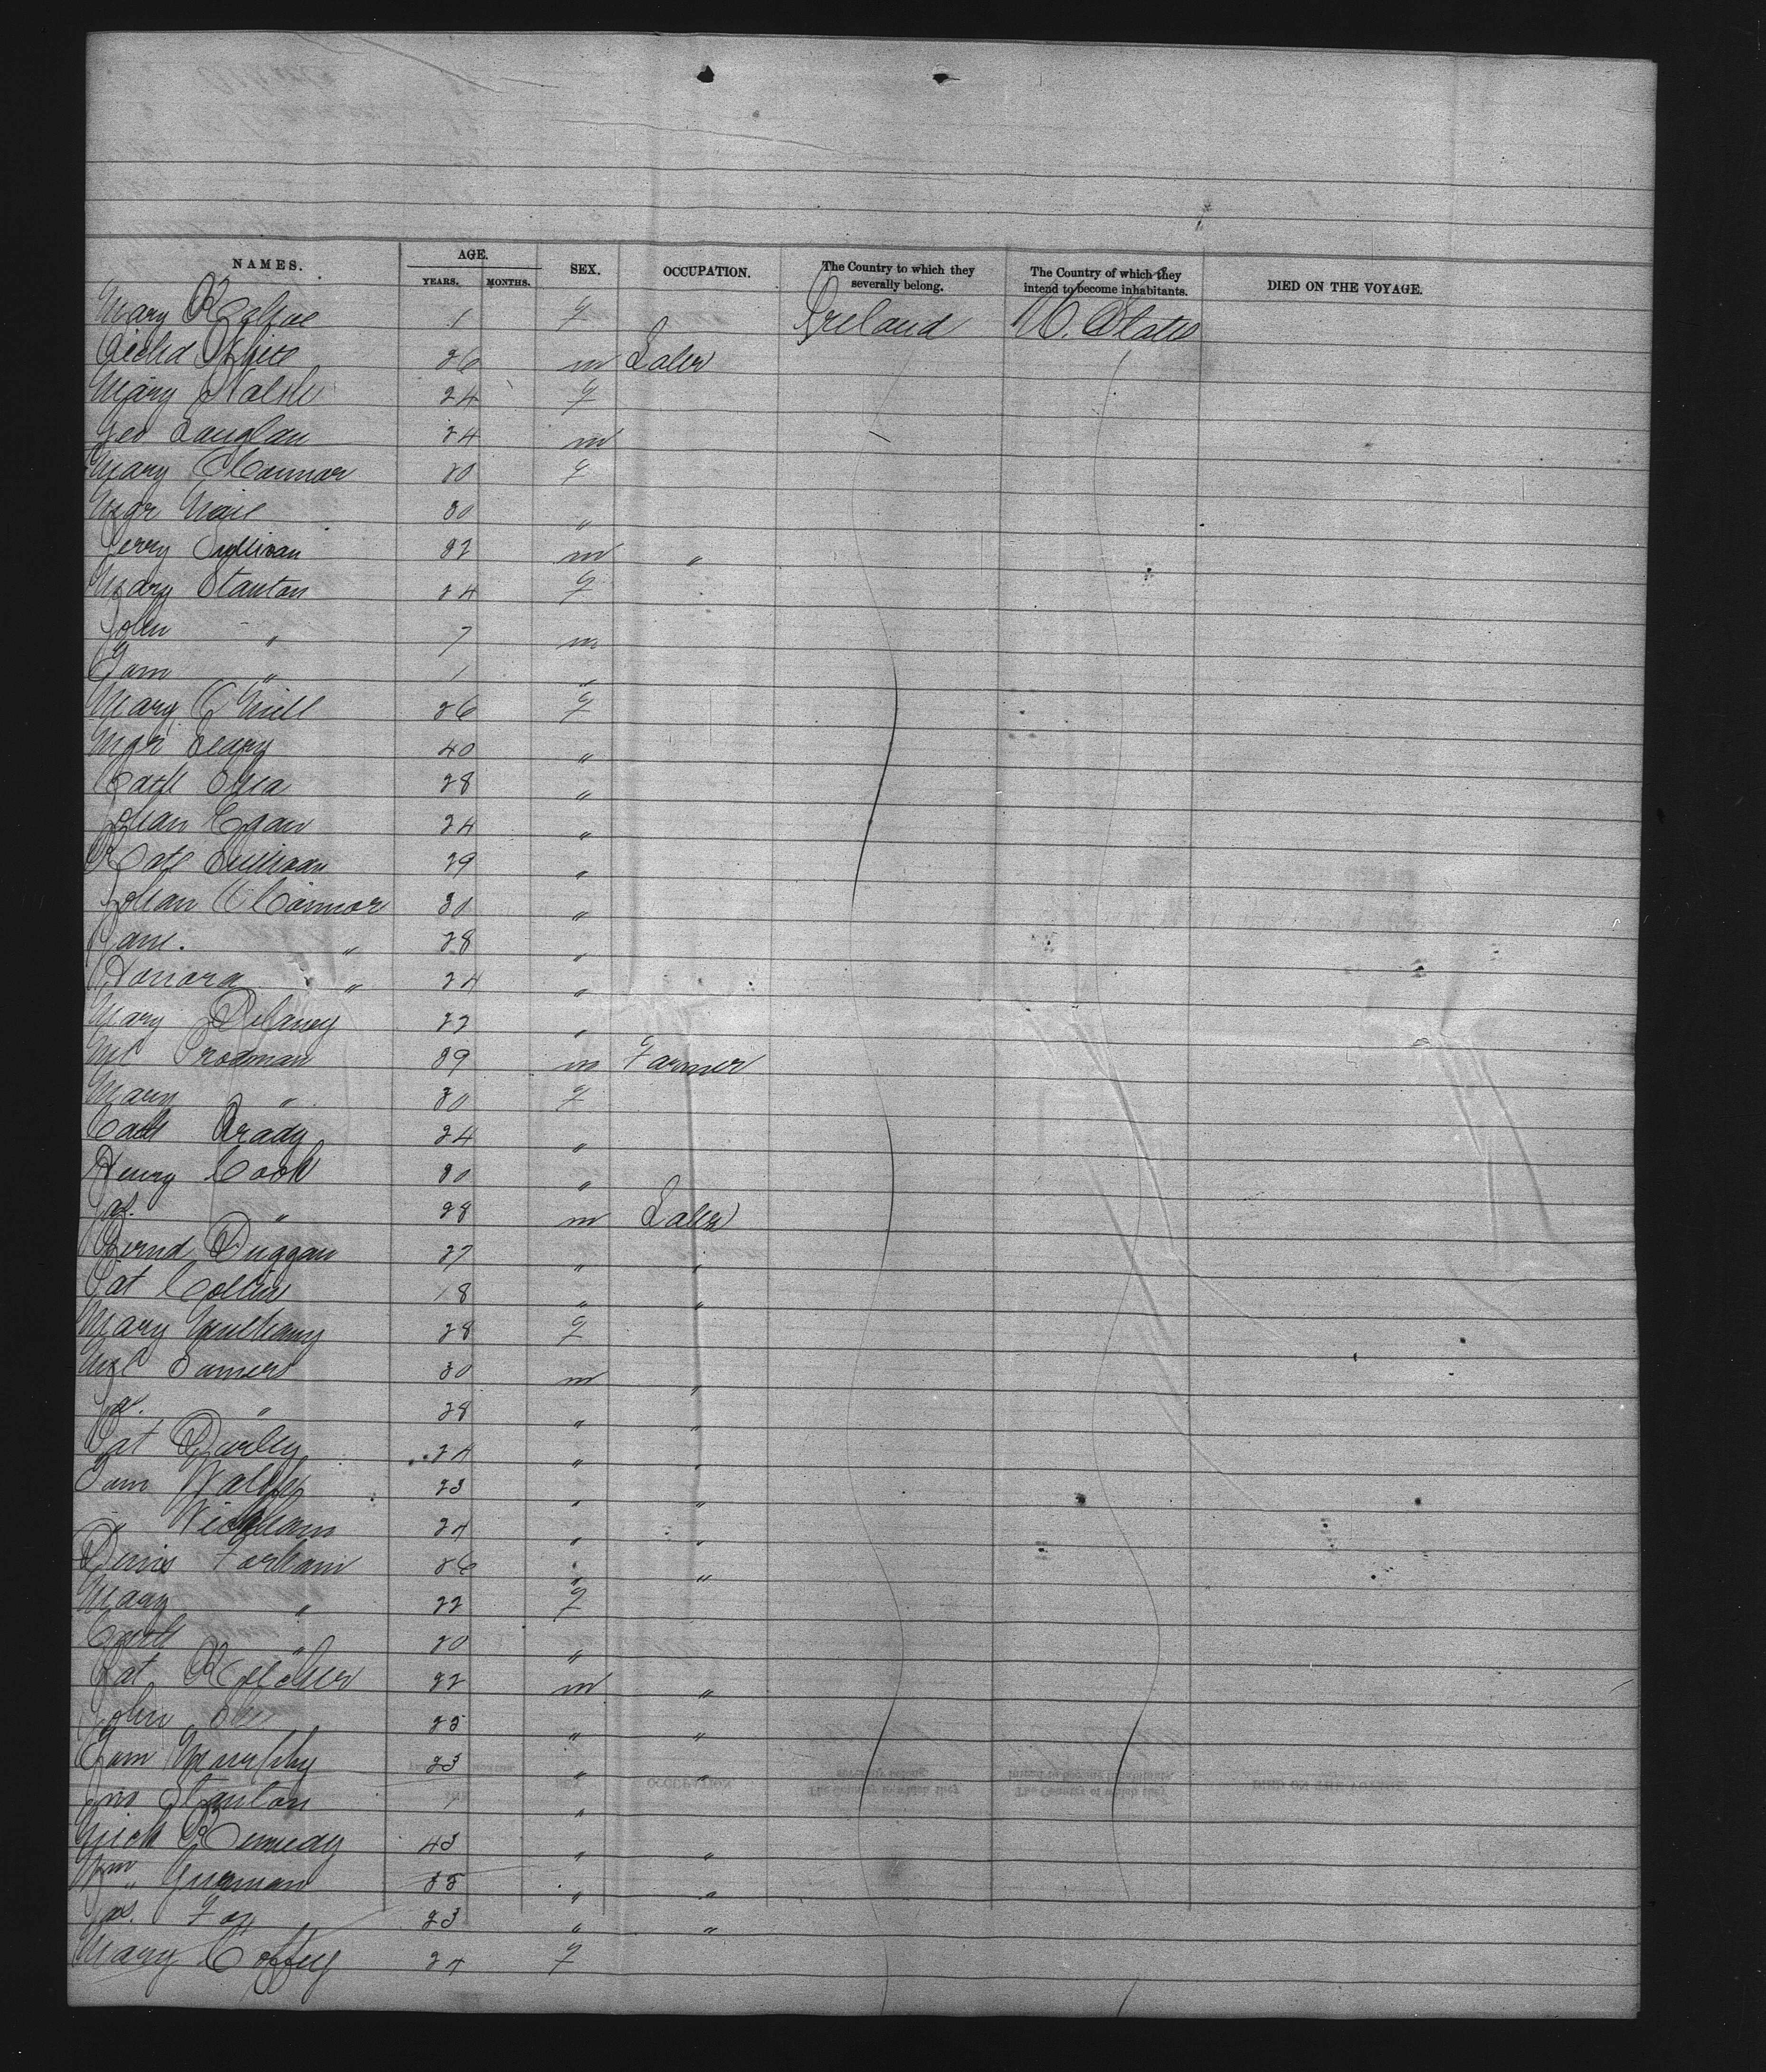 NAMES. AGE. SEX. OCCUPATION. The Country to which they severally belong. The Country of which they intend to become inhabitants. DIED ON THE VOYAGE.
YEARS. MONTHS.
Mary 1 f Ireland U. States
Richd White 26 m Labr
Mary Walsh 24 f
Geo Langlan 24 m
Mary O'Connor 20 f
Mgr 30 "
Jerry Sullivan 22 m "
Mary Stanton 24 f
John " 7 m
Tom " 1 "
Mary O'Neill 26 f
Mgr Leary 40 "
Cath Shea 28 "
Johan Egan 24 "
Kate Sullivan 29 "
Johan O'Connor 30 "
Jane. " 28 "
Honora " 24 "
Mary Delaney 22 "
Ml Brodman 39 m Farmer
Mary " 30 f
Cath Brady 24 "
Henry Cook 30 "
Jas. " 28 m Labr
Bernd Duggan 27 " "
Pat Collin 18 " "
Mary Mulhany 28 f
Ml Somers 30 m "
Ja. " 28 " "
Pat Darley 24 " "
Tom Walsh 23 " "
" 24 " "
Denis Forham 26 " "
Mary " 22 f
Cath " 20 "
Pat Kelcher 22 m "
John 25 " "
Tom Murphy 23 " "
Jno Stanton 1 "
Mich Kennedy 43 " "
Wm Gurman 35 " "
Jas. Fox 23 " "
Mary Coffey 24 f